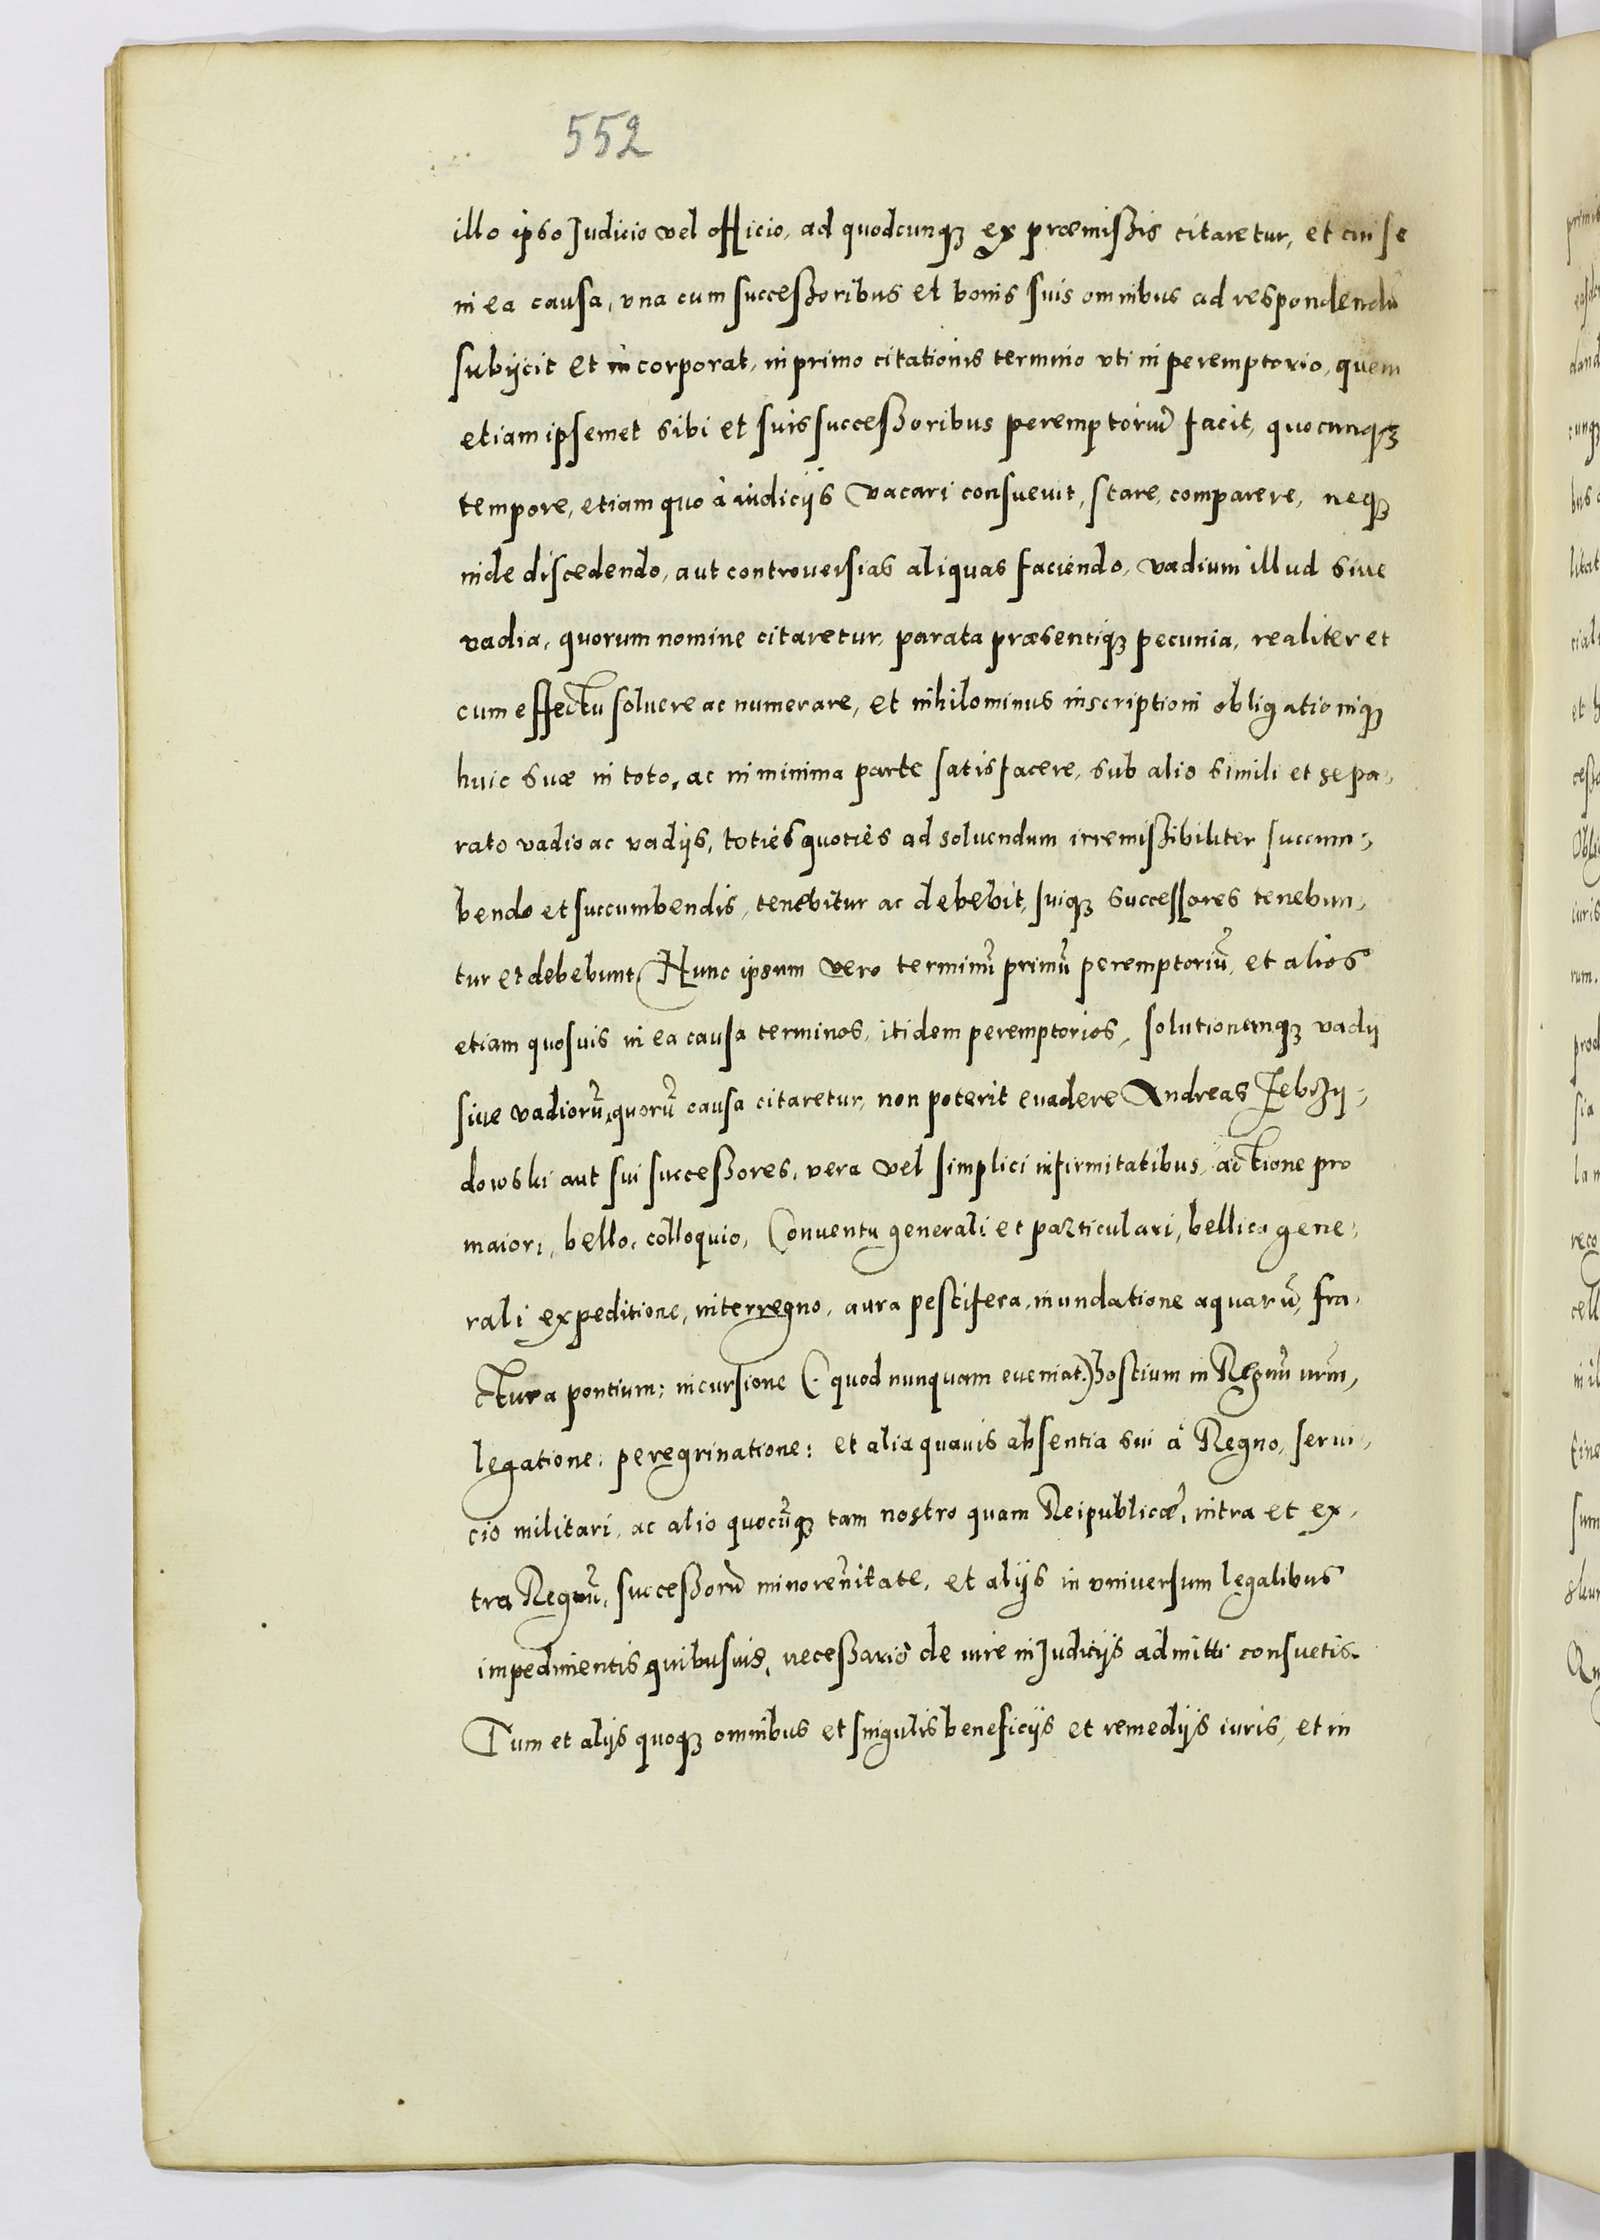 552
illo ipso Judicio vel officio, ad quodcunqꝫ ex præmißis citaretur, et cui se
in ea causa, vna cum succeßoribus et bonis suis omnibus ad respondendũ
subijcit et incorporat, in primo citationis termino vti in peremptorio, quem
etiam ipsemet sibi et suis succeßoribus peremptoriũ facit, quocunqꝫ
tempore, etiam quo à iudicijs vacari consueuit, stare, comparere, neqꝫ
inde discedendo, aut controuersias aliquas faciendo, vadium illud siue
vadia, quorum nomine citaretur, parata præsentiqꝫ pecunia, realiter et
cum effectu soluere ac numerare, et nihilominus inscriptioni obligationiqꝫ
huic suæ in toto, ac in minima parte satisfacere, sub alio simili et sepa,
rato vadio ac vadijs, toties quoties ad soluendum irremißibiliter succum,
bendo et succumbendis, tenebitur ac debebit, suiqꝫ successores tenebun,
tur et debebunt, Hunc ipsum vero terminũ primũ peremptoriũ, et alios
etiam quosuis in ea causa terminos, itidem peremptorios, solutionemqꝫ vadij
siue vadiorũ, quorũ causa citaretur, non poterit euadere Andreas Zebrzy,
dowski aut sui succeßores, vera vel simplici infirmitatibus, actione pro
maiori, bello, colloquio, Conuentu generali et particulari, bellica gene,
rali expeditione, interregno, aura pestifera, inundatione aquarũ, fra,
ctura pontium; incursione (. quod nunquam eueniat.) hostium in Regnũ nrm̃,
legatione, peregrinatione: et alia quauis absentia sui à Regno, serui,
cio militari, ac alio quocũqꝫ tam nostro quam Reipublicæ, intra et ex,
tra Regnũ, succeßorũ minorennitate, et alijs in vniuersum legalibus
impedimentis quibusuis, neceßario de iure in Judicijs admitti consuetis.
Tum et alijs quoqꝫ omnibus et singulis beneficijs et remedijs iuris, et in